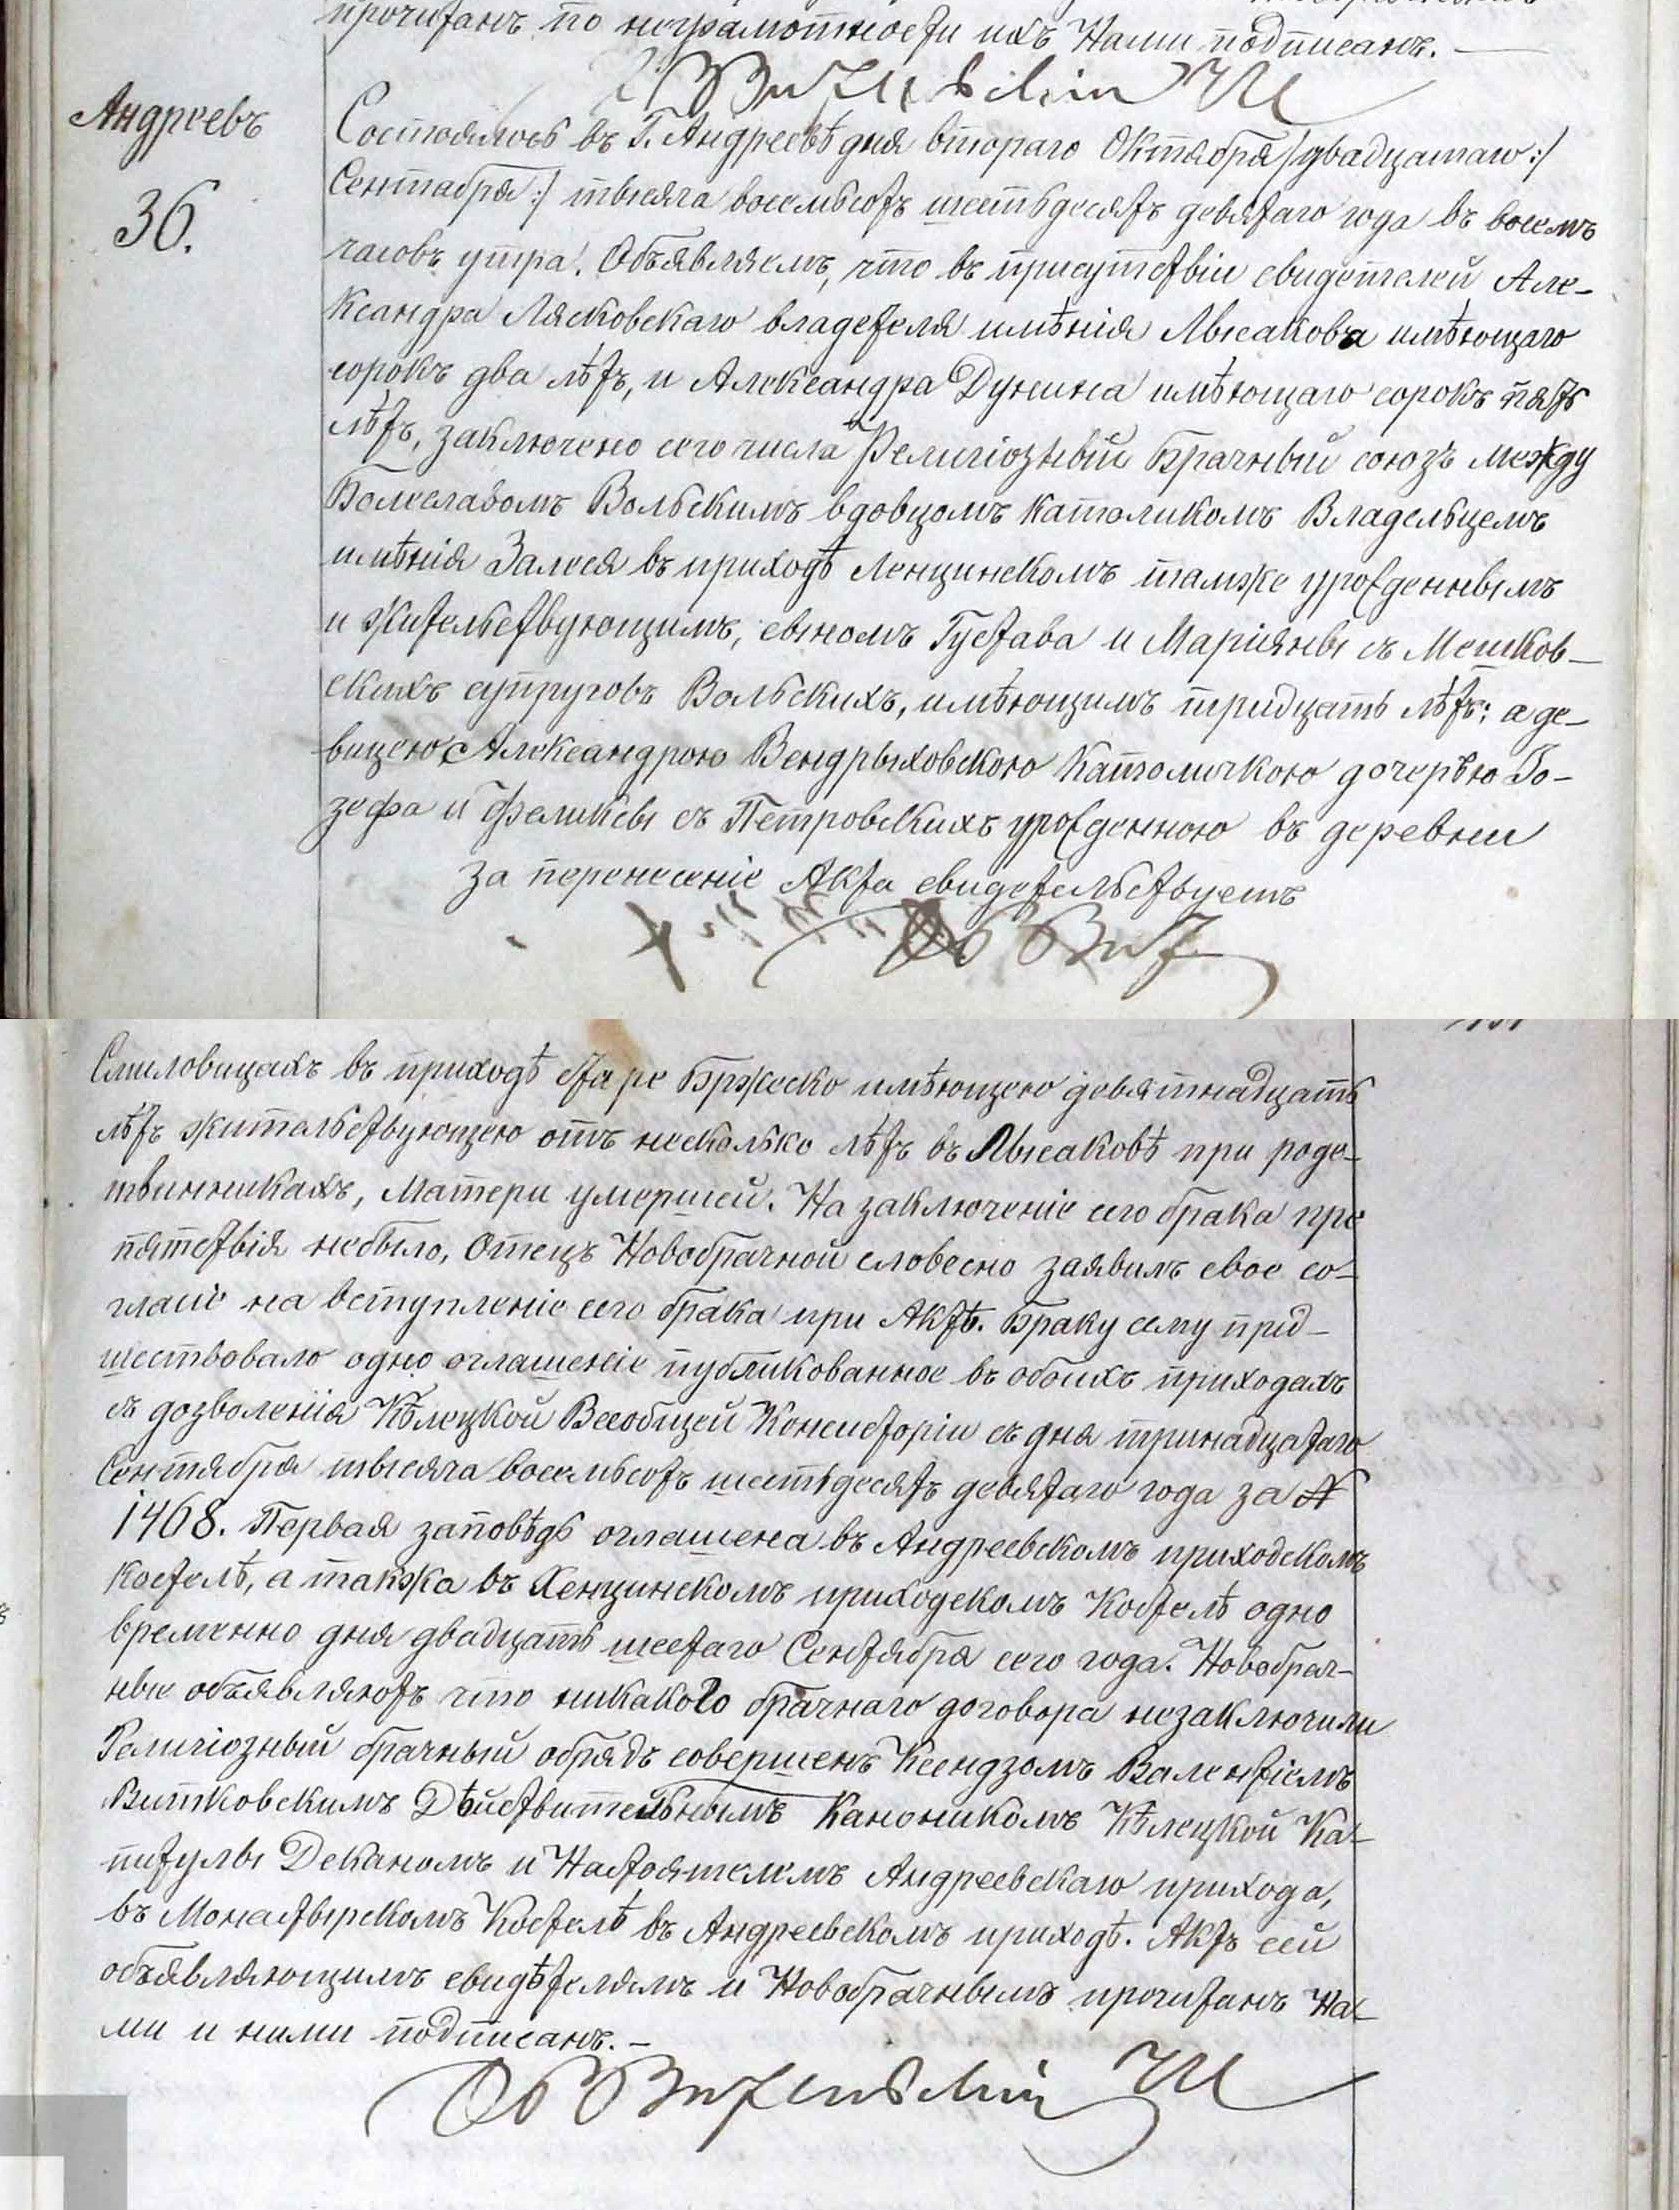 прочитанъ по неграмотности ихъ Нами подписанъ. —
Андреевъ
36.
Состоялось въ Г. Андреевѣ дня втораго Октября /двадцатаго :/
Сентября :/ тысяча восемьсотъ шестьдесятъ девятаго года въ восемъ
часовъ утра. Объявляемъ, что въ присутствіи свидетелей Але-
ксандра Лясковскаго владетеля имѣнія Лысакова имѣющаго
сорокъ два лѣтъ, и Александра Дунина имѣющаго сорокъ пять
лѣтъ, заключено сего числа Религіозный Брачный союзъ между
Болеславомъ Вольскимъ вдовцомъ Католикомъ Владельцемъ
имѣнія Залеся въ приходѣ Ленцинскомъ тамже урожденнымъ
и жительствующимъ, сыномъ Густава и Маріянны съ Мешков-
скихъ супруговъ Вольскихъ, имѣющимъ тридцать лѣтъ; а де-
вицею Александрою Вендрыховскою Католичкою дочерью Іо-
зефа и Феликсы съ Петровскихъ урожденною въ деревни
За перенесеніе Акта свидетельствуетъ
Смиловицахъ въ приходѣ старе Бржеско имѣющею девятнадцать
лѣтъ жительствующею отъ несколько лѣтъ въ Лысаковѣ при родс-
твинникахъ, Матери умершей. На заключеніе сего брака пре
пятствія небыло, Отецъ Новобрачной словесно заявилъ свое со-
гласіе на вступленіе сего брака при Актѣ. Браку сему пред-
шествовало одно оглашеніе публикованное въ обоихъ приходахъ
съ дозволенія Кѣлецкой Всеобщей Консисторіи съ дня тринадцатаго
Сентября тысяча восемьсотъ шестьдесятъ девятаго года за N
1468. Первая заповѣдь оглашена въ Андреевскомъ приходскомъ
Костелѣ, а такжа въ Хенцинскомъ приходскомъ Костелѣ одно
временно дня двадцать шестаго Сентября сего года. Новобрач-
ные объявляютъ что никакого брачнаго договора незаключили
Религіозный брачный обрядъ совершенъ Ксендзомъ Валентіемъ
Витковскимъ Дѣйствительнымъ Каноникомъ Кѣлецкой Ка-
питулы Деканомъ и Настоятелемъ Андреевскаго прихода,
въ Монастырскомъ Костелѣ въ Андреевскомъ приходѣ. Актъ сей
объявляющимъ свидѣтелямъ и Новобрачнымъ прочитанъ На-
ми и ними подписанъ. —